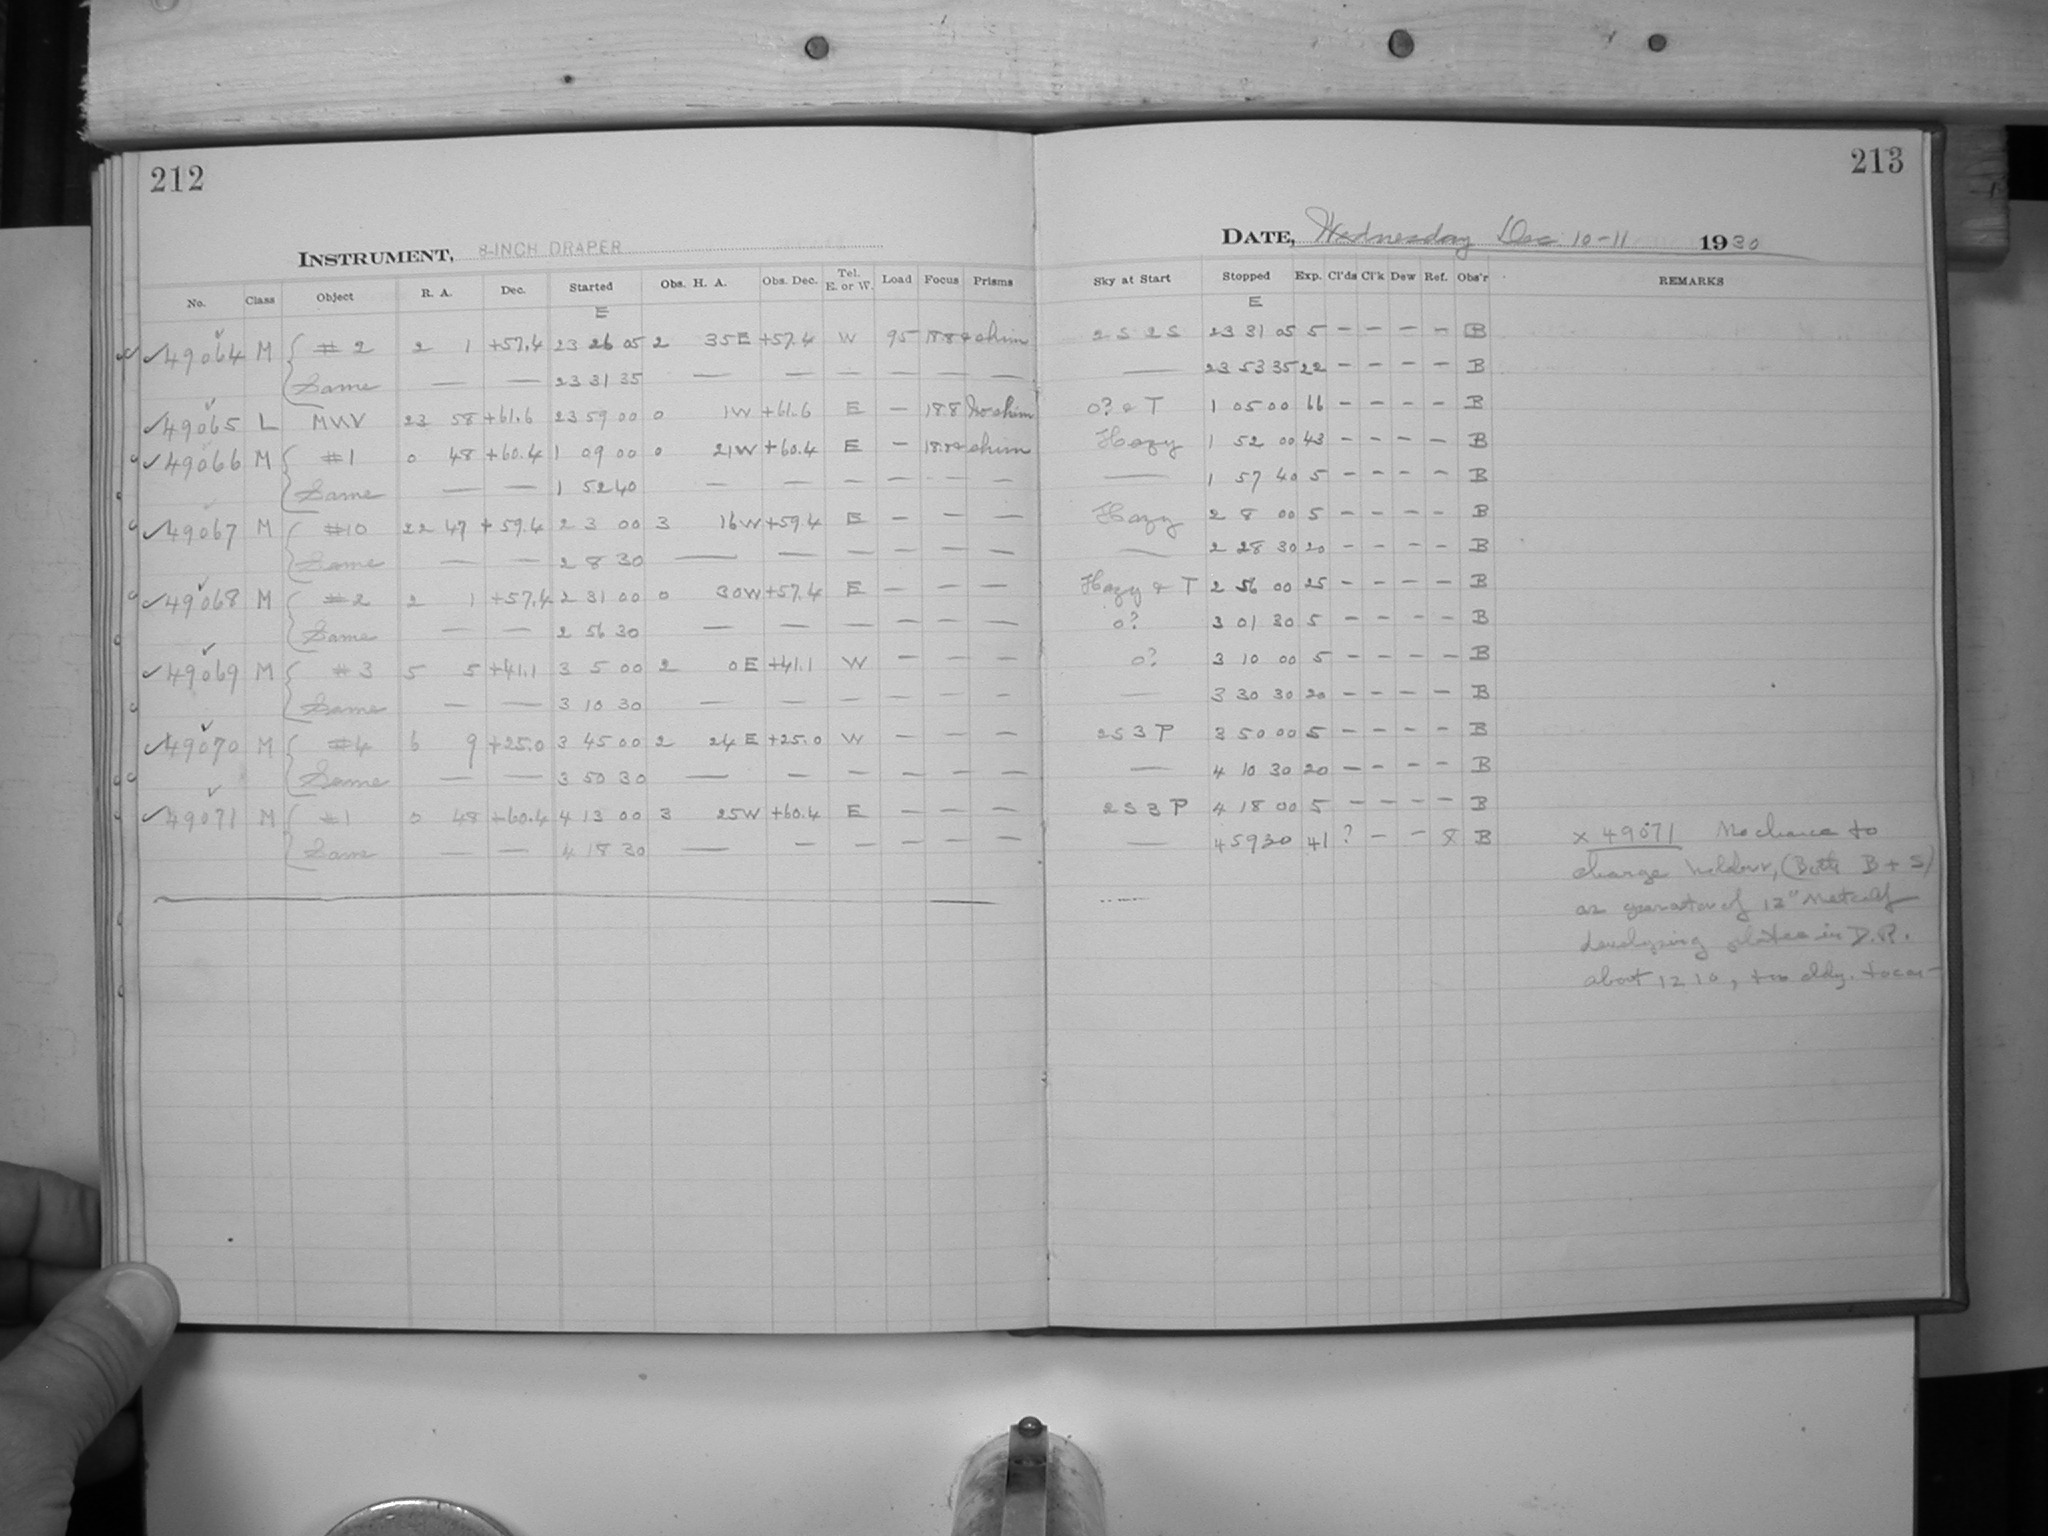 212
INSTRUMENT, 8-INCH DRAPER
No. Class Object R. A. Dec. Started Obs. H. A. Obs. Dec. Tel. E. or W. Load Focus Prisms
E
49064 M #2 2 1 +57.4 23 26 05 2 35E +57.4 W 95 18.8 shim
Same — — 23 31 35 — — — — — —
49065 L MWV 23 58 +61.6 23 59 00 0 1W +61.6 E — 18.8 No shim
49066 M #1 0 48 +60.4 1 09 00 0 21W +60.4 E — shim
Same — — 1 52 40 — — — — — —
49067 M #10 22 47 +59.4 2 3 00 3 16W +59.4 E — — —
Same — — 2 8 30 — — — — — —
49068 M #2 2 1 +57.4 2 31 00 0 30W +57.4 E — — —
Same — — 2 56 30 — — — — — —
49069 M #3 5 5 +41.1 3 5 00 2 0E +41.1 W — — —
Same — — 3 10 30 — — — — — —
49070 M #4 6 9 +25.0 3 45 00 2 24E +25.0 W — — —
Same — — 3 50 30 — — — — — —
49071 M #1 0 48 +60.4 4 13 00 3 25W +60.4 E — — —
Same — — 4 18 30 — — — — — —
213
DATE, Wednesday Dec 10-11 1930
Sky at Start Stopped Exp. Cl'ds Cl'k Dew Ref. Obs'r REMARKS
E
2S 2S 23 31 05 5 — — — — B
— 23 53 35 22 — — — — B
0? & T 1 05 00 66 — — — — B
Hazy 1 52 00 43 — — — — B
— 1 57 40 5 — — — — B
Hazy 2 8 00 5 — — — — B
— 2 28 30 20 — — — — B
Hazy & T 2 56 00 25 — — — — B
0? 3 01 30 5 — — — — B
0? 3 10 00 5 — — — — B
— 3 30 30 20 — — — — B
2S 3P 3 50 00 5 — — — — B
— 4 10 30 20 — — — — B
2S 3P 4 18 00 5 — — — — B
— 4 59 30 41 ? — — B
x 49071 No chance to
change holder, (Both B + S)
as operator of 12" Metcalf
developing plates in D.R.
about 12 10, too cldy.